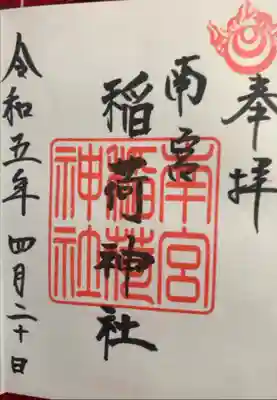 奉拝
南宮
稲荷神社
令和五年 四月二十日
南宮
稲荷
神社